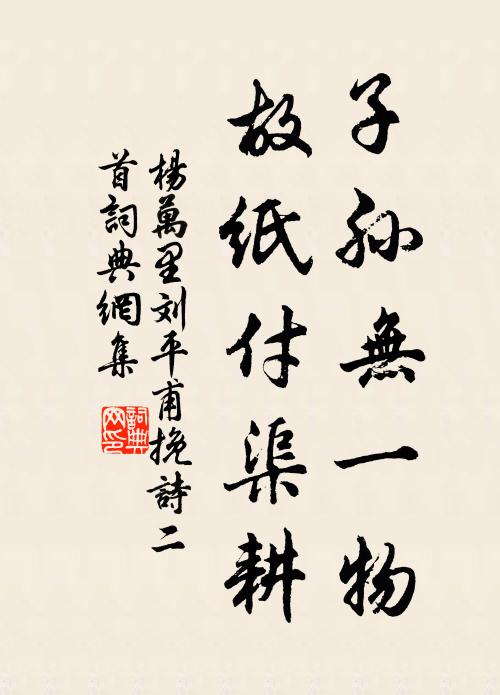 子孫無一物
故紙付渠耕
楊萬里刘平甫挽詩二
首詞典網集
詞典网印